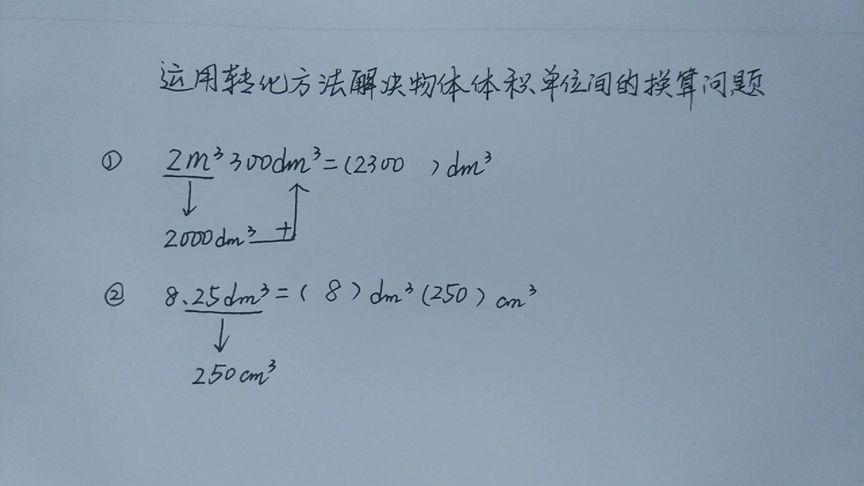 运用转化方法解决物体体积单位间的换算问题
① 2m³300dm³=(2300 )dm³
2000dm³ +
② 8.25dm³=( 8 )dm³(250)cm³
250cm³